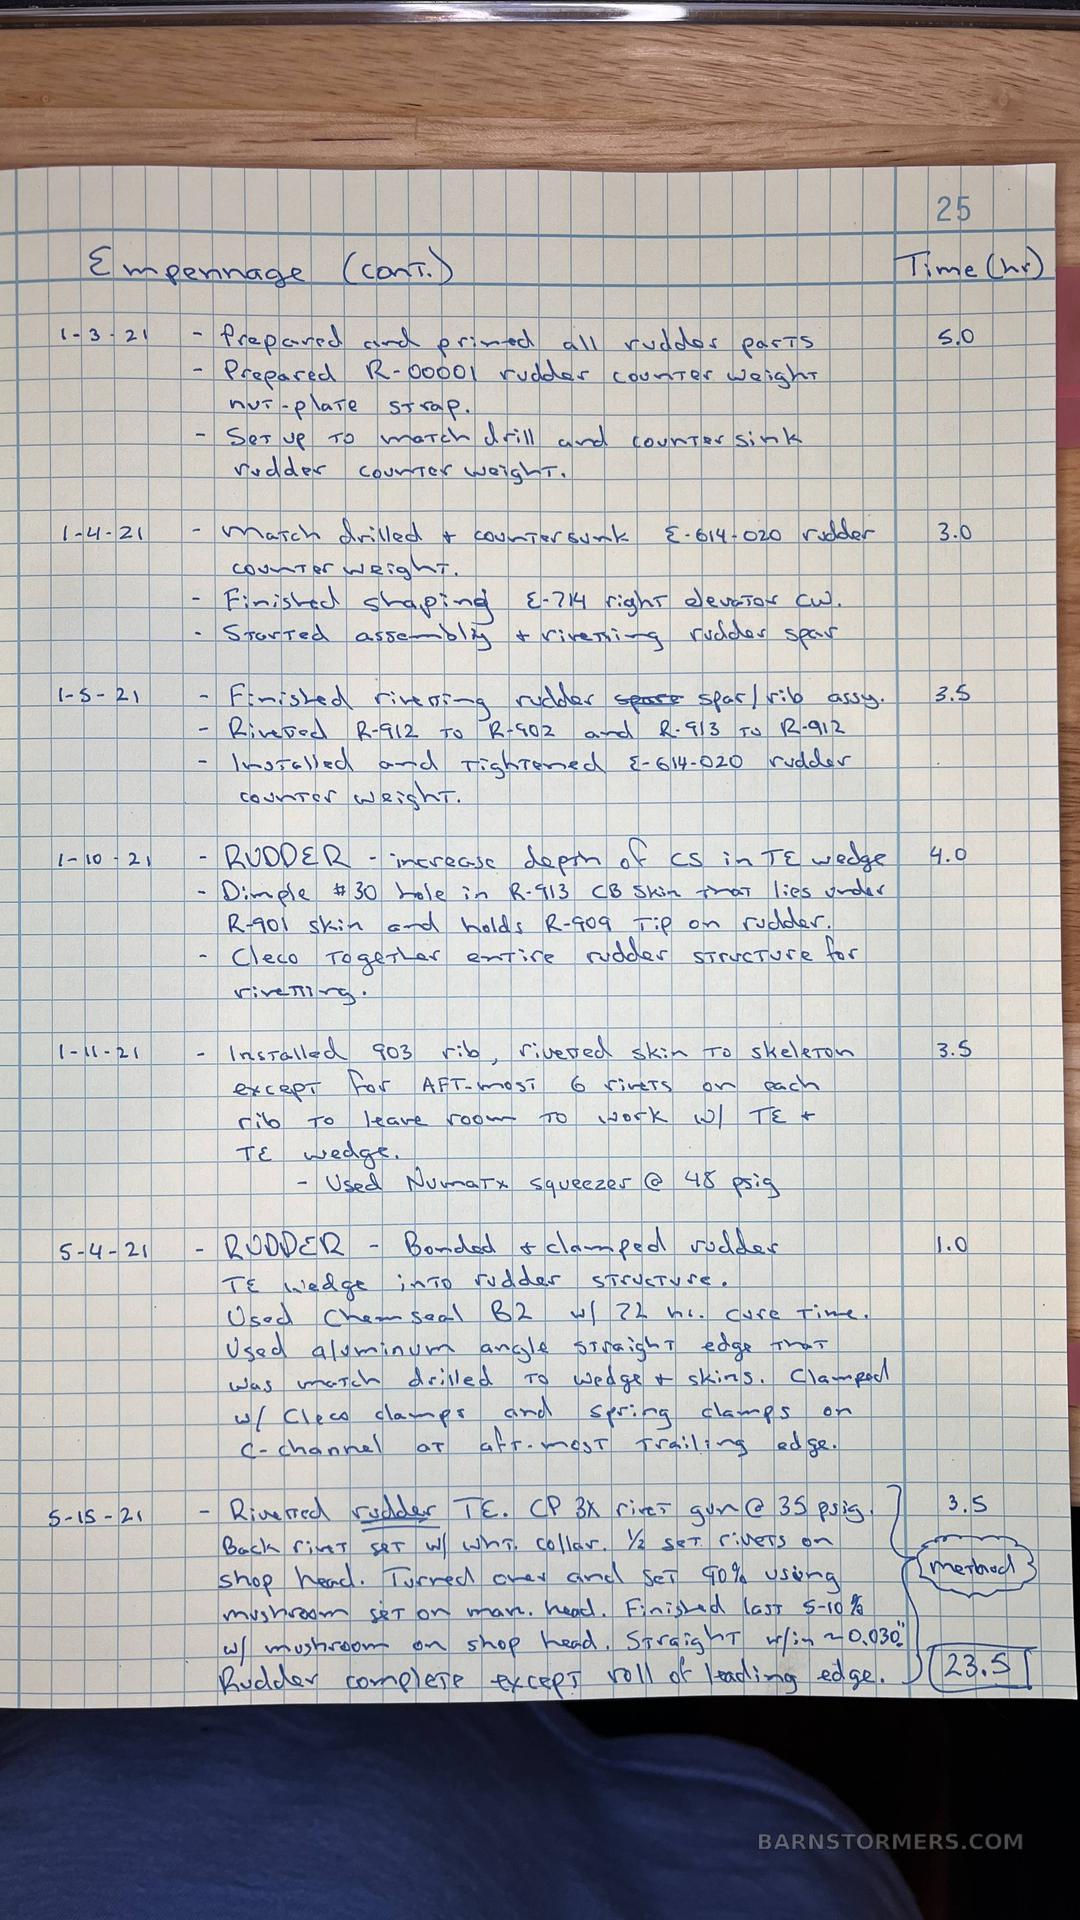 25
Empennage (cont.) Time (hr)
1-3-21 - Prepared and primed all rudder parts 5.0
- Prepared R-00001 rudder counter weight
nut-plate strap.
- Set up to match drill and counter sink
rudder counter weight.
1-4-21 - Match drilled + countersunk E-614-020 rudder 3.0
counter weight.
- Finished shaping E-714 right elevator CW.
- Started assembly + riveting rudder spar
1-5-21 - Finished riveting rudder spar/rib assy. 3.5
- Riveted R-912 to R-902 and R-913 to R-912
- Installed and tightened E-614-020 rudder
counter weight.
1-10-21 - RUDDER - increase depth of CS in TE wedge 4.0
- Dimple #30 hole in R-913 CB skin that lies under
R-901 skin and holds R-909 Tip on rudder.
- Cleco together entire rudder structure for
riveting.
1-11-21 - Installed 903 rib, riveted skin to skeleton 3.5
except for AFT-most 6 rivets on each
rib to leave room to work w/ TE +
TE wedge.
- Used Numatx squeezer @ 48 psig
5-4-21 - RUDDER - Bonded + clamped rudder 1.0
TE wedge into rudder structure.
Used Chem seal B2 w/ 72 hr. cure time.
Used aluminum angle straight edge that
was match drilled to wedge + skins. Clamped
w/ Cleco clamps and spring clamps on
C-channel at aft-most trailing edge.
5-15-21 - Rivetted rudder TE. CP 3X rivet gun @ 35 psig. 3.5
Back rivet set w/ wht. collar. 1/2 set rivets on
shop head. Turned over and set 90% using method
mushroom set on man. head. Finished last 5-10%
w/ mushroom on shop head. Straight w/in ~0.030"
Rudder complete except roll of leading edge. 23.5
BARNSTORMERS.COM